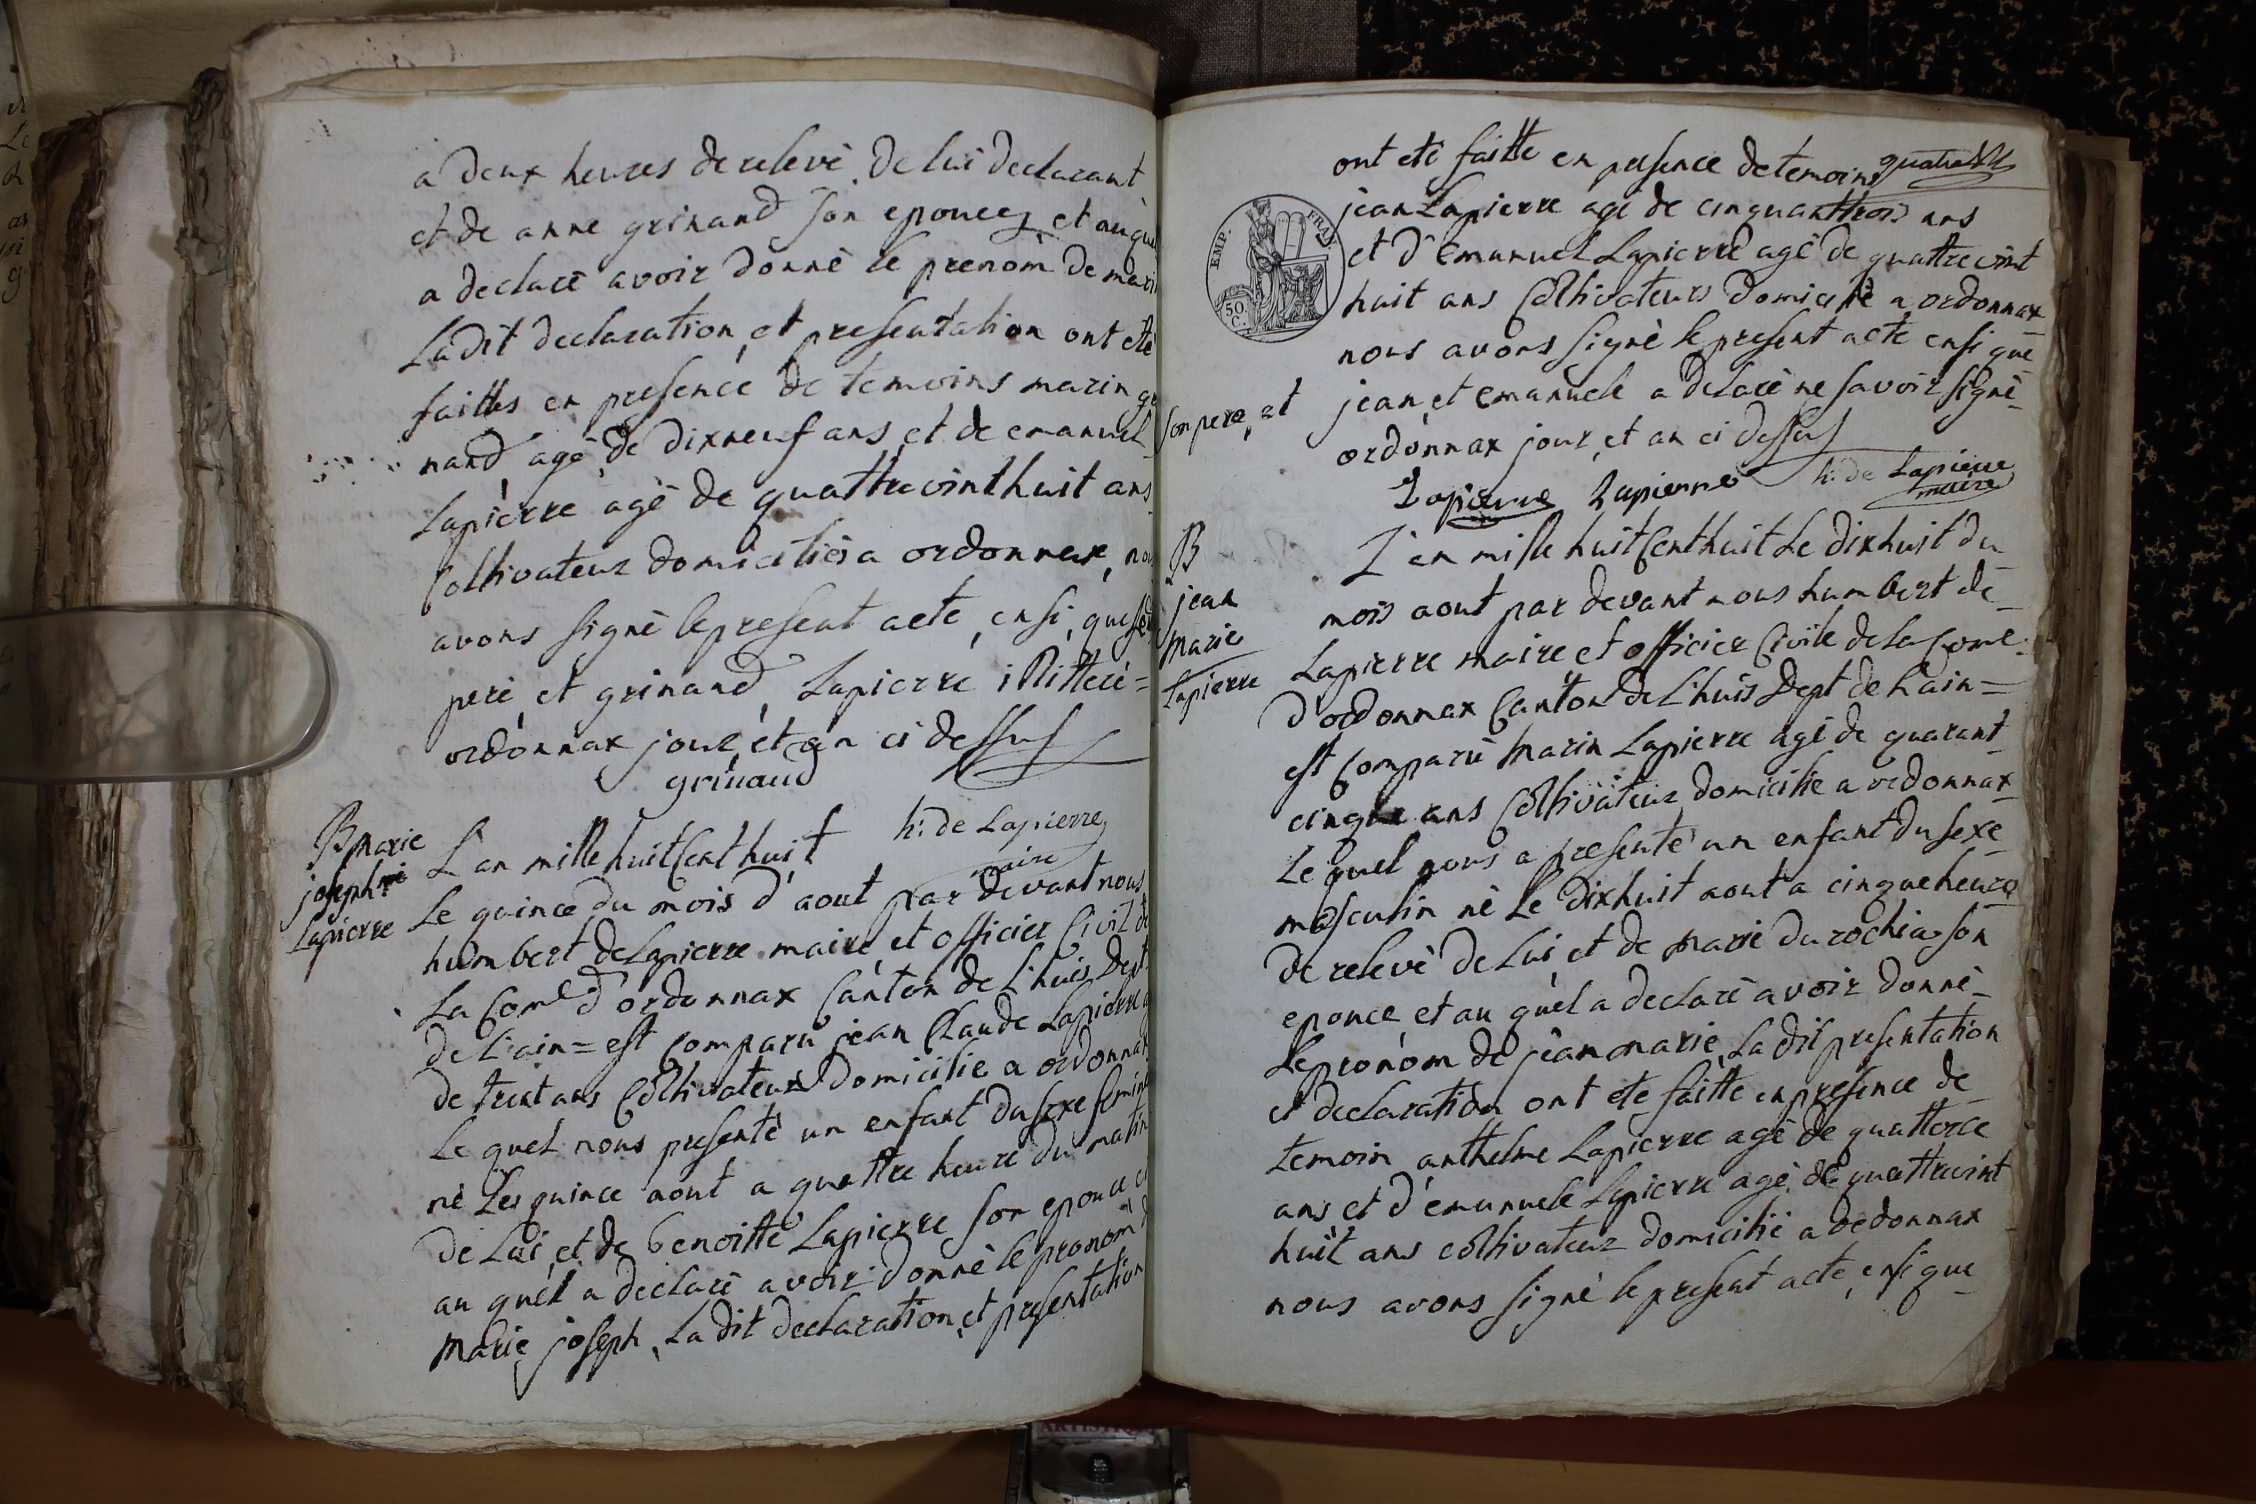 a deux heures de relevé de lui declarant
et de anne grinand son epouce et au que
a declaré avoir donné le prenom de mari
Ladit declaration et presentation ont ete
faittes en presence de temoins marin gri
nand agé de dixneuf ans et de emanuel
Lapierre agé de quattrevint huit ans
Coltivateur domiciliés a ordonnax, nou
avons signé le present acte ensi que le
pere et grinand Lapierre illitteré =
ordonnax jour et an ci dessus
grinand
h: de Lapierre
maire
B marie
joseph
Lapierre
L'an mille huit Cent huit
Le quince du mois d'aout par devant nous
humbert de Lapierre maire et officier Civil de
La Come d'ordonnax Canton de L'huis Dept
de L'ain = est Comparu jean Claude Lapierre a
de trent ans Coltivateur Domicilie a ordonnax
Le quel nous presenté un enfant du sexe femini
né Les quince aout a quattre heure du matin
de Lui et de benoitte Lapierre son epouce et
au quel a declaré avoir donné le pronom d
marie joseph, La dit declaration et presentation
ont eté faitte en presence de temoins
jean Lapierre agé de cinquanttrois ans
et d'emanuel Lapierre agé de quattrevint
huit ans Coltivateurs domicilié a ordonnax
nous avons signé le present acte ensi que
son pere, et
jean et emanuele a delaré ne savoir signé
ordonnax jour et an ci dessus
Lapierre Lapierre h: de Lapierre
maire
EMP. FRAN.
50 C.
B
jean
marie
Lapierre
L'an mille huit Cent huit Le dixhuit du
mois aout par devant nous humbert de
Lapierre maire et officier Civile de la Come
d'ordonnax Canton de L'huis Dept de Lain =
est Comparu marin Lapierre agé de quarant
cinque ans Coltivateur domicilie a ordonnax
Le quel nous a presenté un enfant du sexe
masculin né Le dixhuit aout a cinque heure
de relevé de Lui et de marie du rochias son
epouce et au quel a declaré avoir donné
Le pronom de jean marie, La dit presentation
et declaration ont ete faitte en presence de
temoin anthelme Lapierre agé de quattorce
ans et d'emanuele Lapierre agé de quattrevint
huit ans coltivateur domicilié a ordonnax
nous avons signé le present acte, ensi que